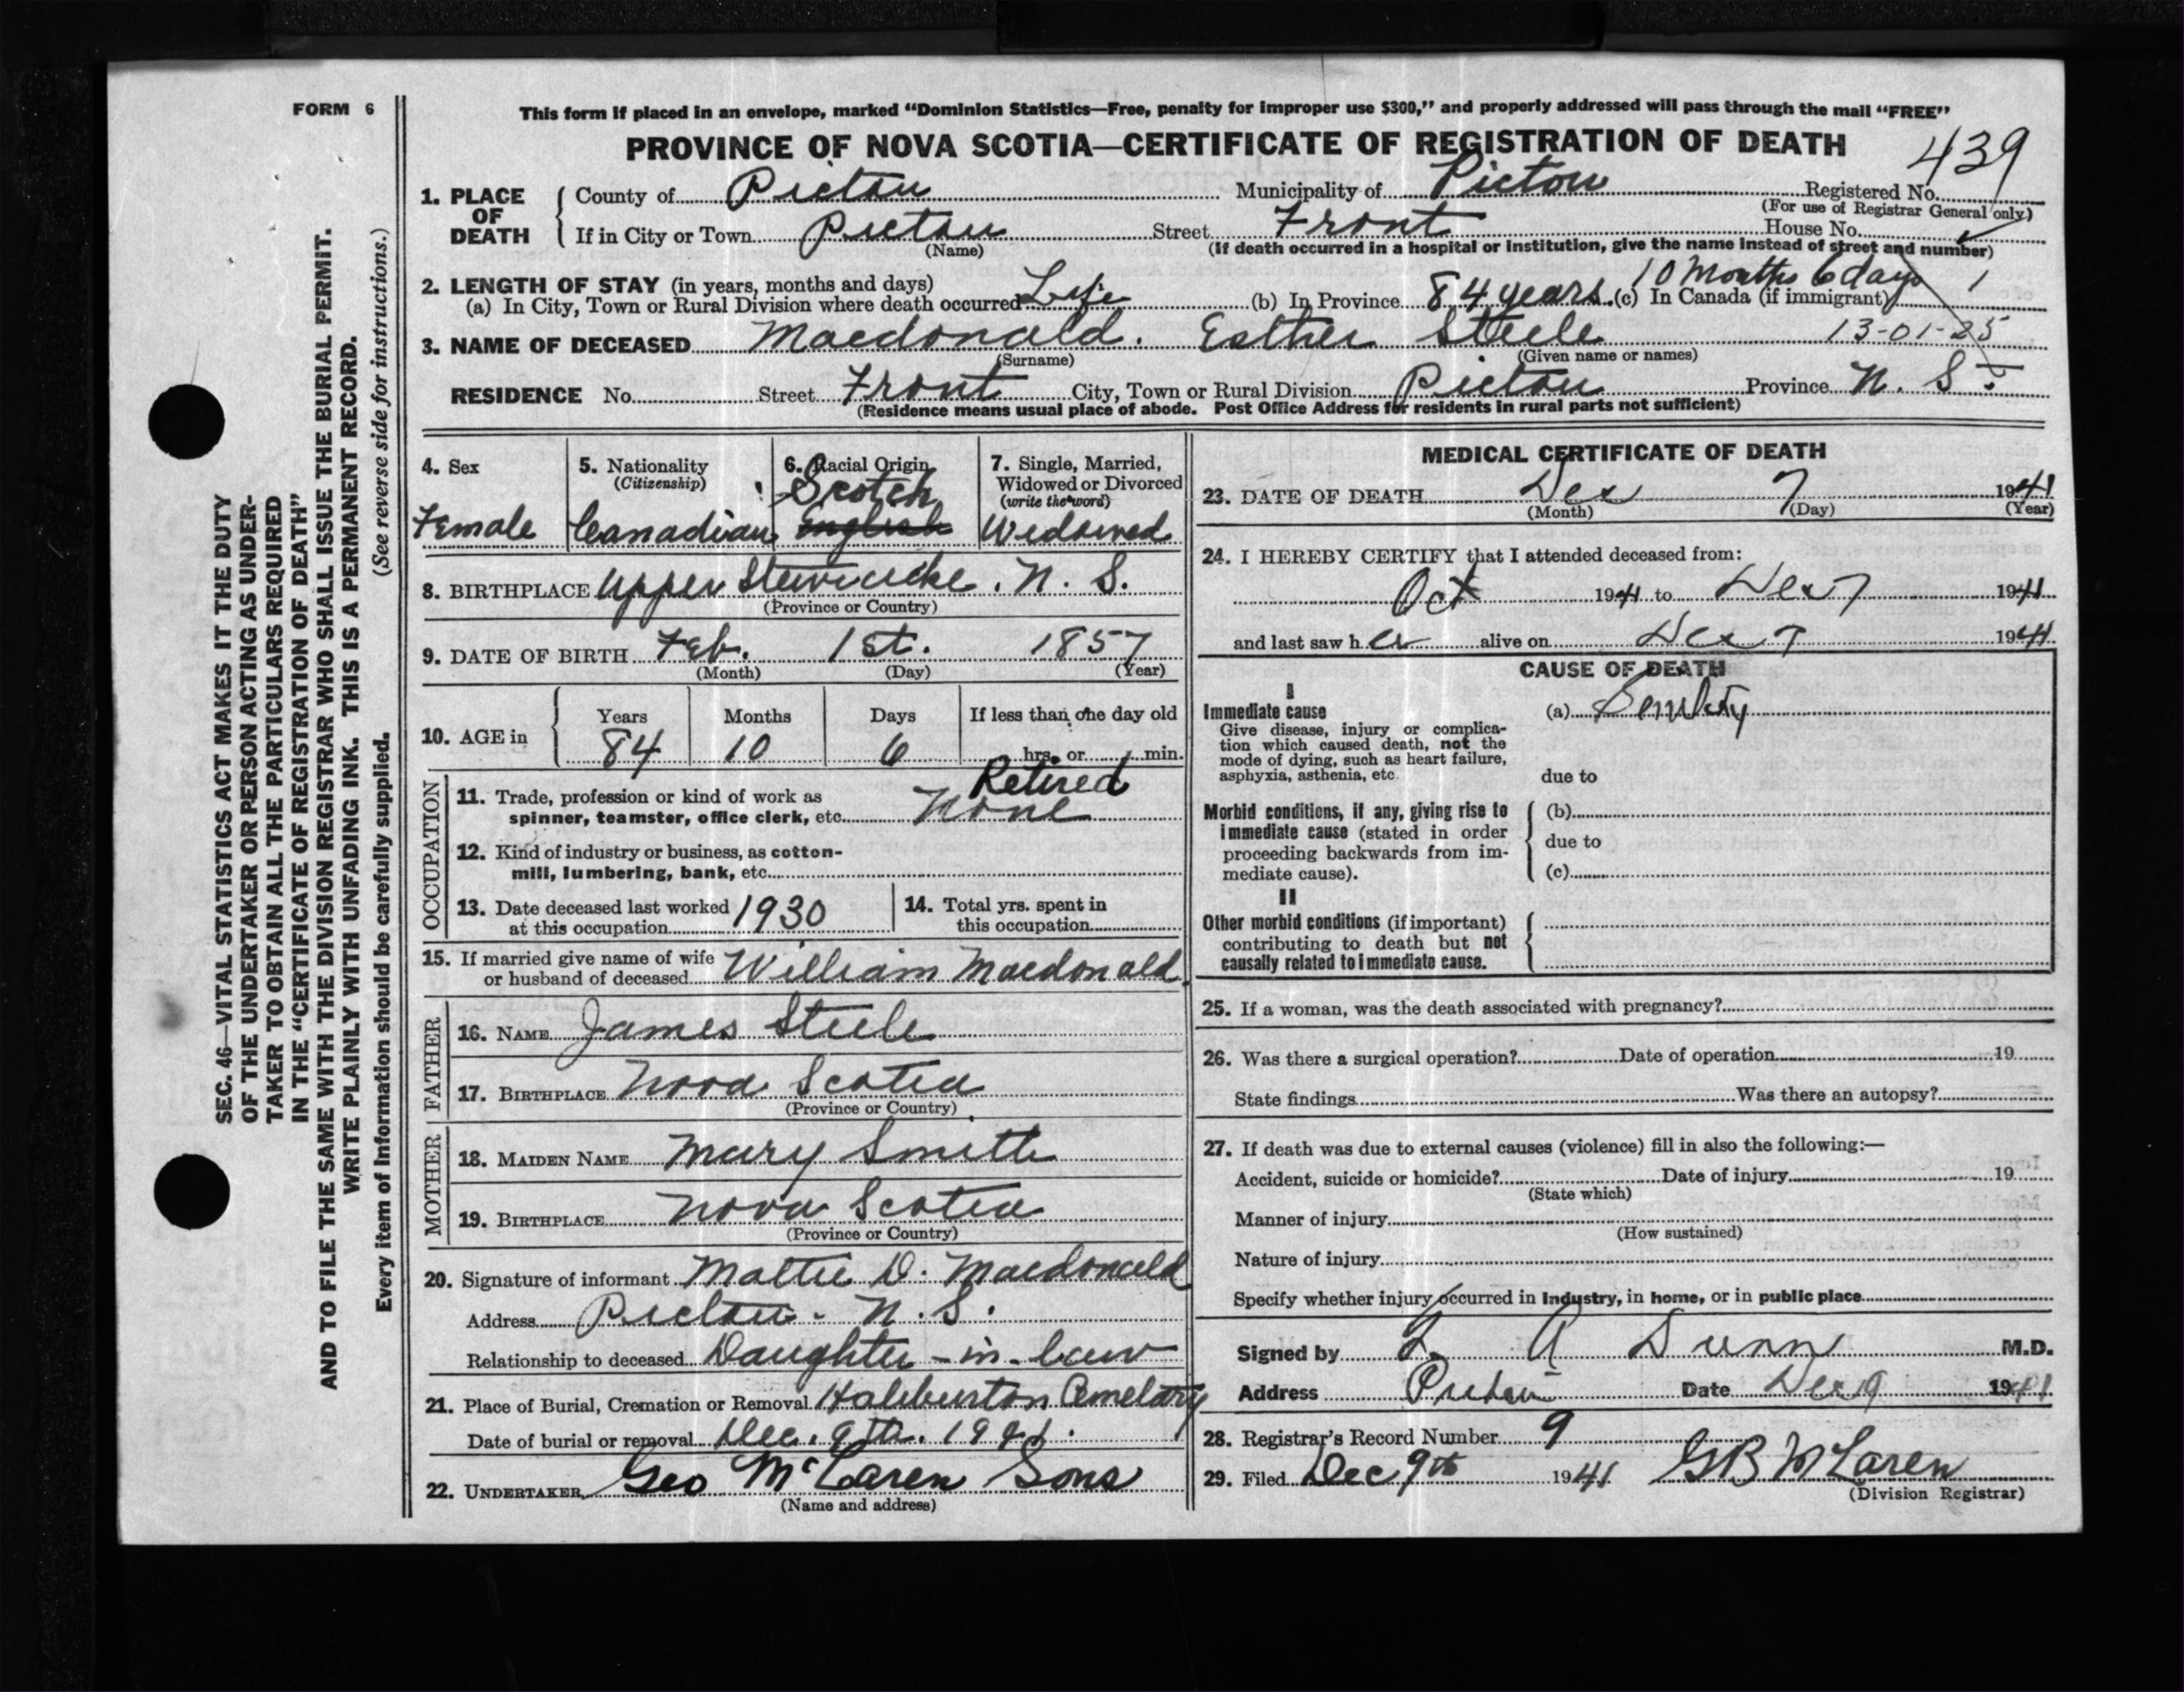 FORM 6
This form if placed in an envelope, marked "Dominion Statistics—Free, penalty for improper use $300," and properly addressed will pass through the mail "FREE"
PROVINCE OF NOVA SCOTIA—CERTIFICATE OF REGISTRATION OF DEATH
439
1. PLACE OF DEATH County of Pictou Municipality of Pictou Registered No.
(For use of Registrar General only)
If in City or Town Pictou Street Front House No.
(Name) (If death occurred in a hospital or institution, give the name instead of street and number)
2. LENGTH OF STAY (in years, months and days) 10 Months 6 days 1
(a) In City, Town or Rural Division where death occurred Life (b) In Province 84 years (c) In Canada (if immigrant)
3. NAME OF DECEASED Macdonald. Esther Steele 13-01-25
(Surname) (Given name or names)
RESIDENCE No. Street Front City, Town or Rural Division Pictou Province N. S.
(Residence means usual place of abode. Post Office Address for residents in rural parts not sufficient)
4. Sex
Female
5. Nationality
(Citizenship)
Canadian
6. Racial Origin
Scotch
English
7. Single, Married,
Widowed or Divorced
(write the word)
Widowed
8. BIRTHPLACE Upper Stewiacke. N. S.
(Province or Country)
9. DATE OF BIRTH Feb. 1st. 1857
(Month) (Day) (Year)
10. AGE in Years Months Days If less than one day old
84 10 6 hrs. or min.
OCCUPATION
Retired
11. Trade, profession or kind of work as
spinner, teamster, office clerk, etc. None
12. Kind of industry or business, as cotton-
mill, lumbering, bank, etc.
13. Date deceased last worked
at this occupation 1930
14. Total yrs. spent in
this occupation
15. If married give name of wife
or husband of deceased William Macdonald.
FATHER
16. NAME James Steele
17. BIRTHPLACE Nova Scotia
(Province or Country)
MOTHER
18. MAIDEN NAME Mary Smith
19. BIRTHPLACE Nova Scotia
(Province or Country)
20. Signature of informant Mattie D. Macdonald
Address Pictou. N. S.
Relationship to deceased Daughter-in-law
21. Place of Burial, Cremation or Removal Haliburton Cemetary
Date of burial or removal Dec. 9th. 1941.
22. UNDERTAKER Geo McLaren Sons
(Name and address)
MEDICAL CERTIFICATE OF DEATH
23. DATE OF DEATH Dec 7 1941
(Month) (Day) (Year)
24. I HEREBY CERTIFY that I attended deceased from:
Oct 1941 to Dec 7 1941
and last saw her alive on Dec 7 1941
CAUSE OF DEATH
I
Immediate cause (a) Senility
Give disease, injury or complica-
tion which caused death, not the
mode of dying, such as heart failure,
asphyxia, asthenia, etc. due to
Morbid conditions, if any, giving rise to (b)
immediate cause (stated in order due to
proceeding backwards from im-
mediate cause). (c)
II
Other morbid conditions (if important)
contributing to death but not
causally related to immediate cause.
25. If a woman, was the death associated with pregnancy?
26. Was there a surgical operation? Date of operation 19
State findings Was there an autopsy?
27. If death was due to external causes (violence) fill in also the following:—
Accident, suicide or homicide? Date of injury 19
(State which)
Manner of injury
(How sustained)
Nature of injury
Specify whether injury occurred in industry, in home, or in public place
Signed by A Dunn M.D.
Address Pictou Date Dec 9 1941
28. Registrar's Record Number 9
29. Filed Dec 9th 1941 GB McLaren
(Division Registrar)
SEC. 46—VITAL STATISTICS ACT MAKES IT THE DUTY
OF THE UNDERTAKER OR PERSON ACTING AS UNDER-
TAKER TO OBTAIN ALL THE PARTICULARS REQUIRED
IN THE "CERTIFICATE OF REGISTRATION OF DEATH"
AND TO FILE THE SAME WITH THE DIVISION REGISTRAR WHO SHALL ISSUE THE BURIAL PERMIT.
WRITE PLAINLY WITH UNFADING INK. THIS IS A PERMANENT RECORD.
Every item of information should be carefully supplied. (See reverse side for instructions.)